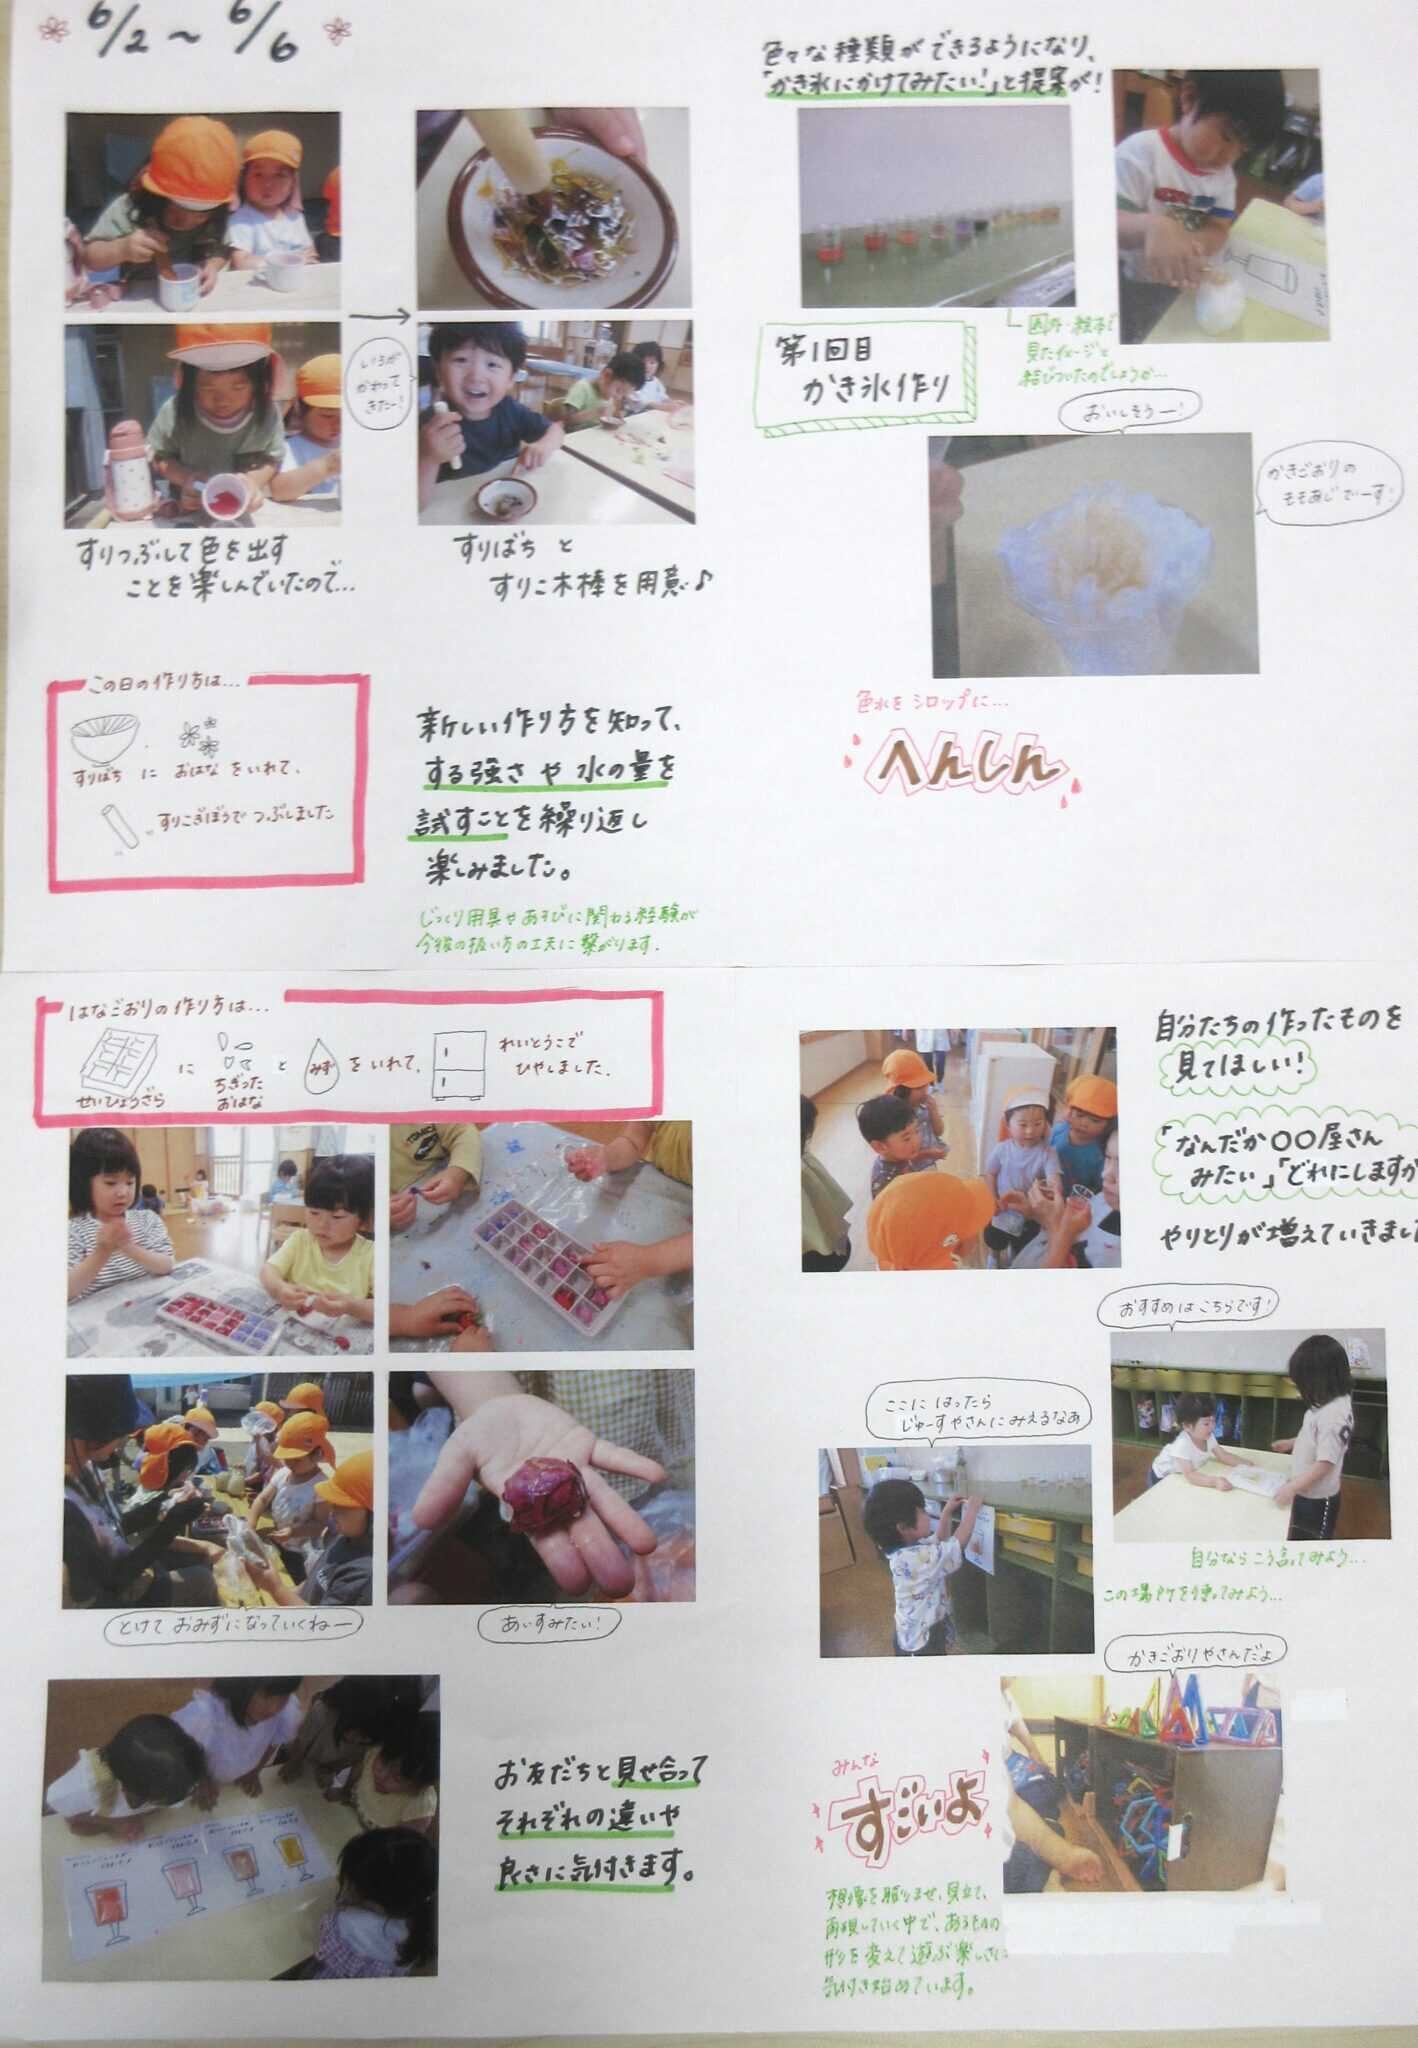 6/2～6/6
いろが
かわって
きたー!
すりつぶして色を出す
ことを楽しんでいたので…
すりばちと
すりこ木棒を用意♪
この日の作り方は…
すりばち に おはな をいれて、
すりこぎぼうで つぶしました
新しい作り方を知って、
する強さや水の量を
試すことを繰り返し
楽しみました。
じっくり用具やあそびに関わる経験が
今後の扱い方の工夫に繋がります.
色々な種類ができるようになり、
「かき氷にかけてみたい!」と提案が!
園外・絵本で
見たイメージと
結びついたのでしょうか…
第1回目
かき氷作り
おいしそうー!
かきごおりの
ももあじでーす!
色水をシロップに…
へんしん
はなごおりの作り方は…
せいひょうざら に ちぎった おはな と みず をいれて、
れいとうこで
ひやしました.
とけて おみずになっていくねー
あいすみたい!
お友だちと見せ合って
それぞれの違いや
良さに気付きます。
自分たちの作ったものを
見てほしい!
「なんだか〇〇屋さん
みたい」「どれにしますか
やりとりが増えていきまし
おすすめはこちらです!
ここに はったら
じゅーすやさんにみえるなあ
自分なら こう言ってみよう…
この場所を使ってみよう…
かきごおりやさんだよ
みんな
すごいよ
想像を膨らませ、見立て、
再現していく中で、あるものの
形を変えて遊ぶ楽しさに
気付き始めています。